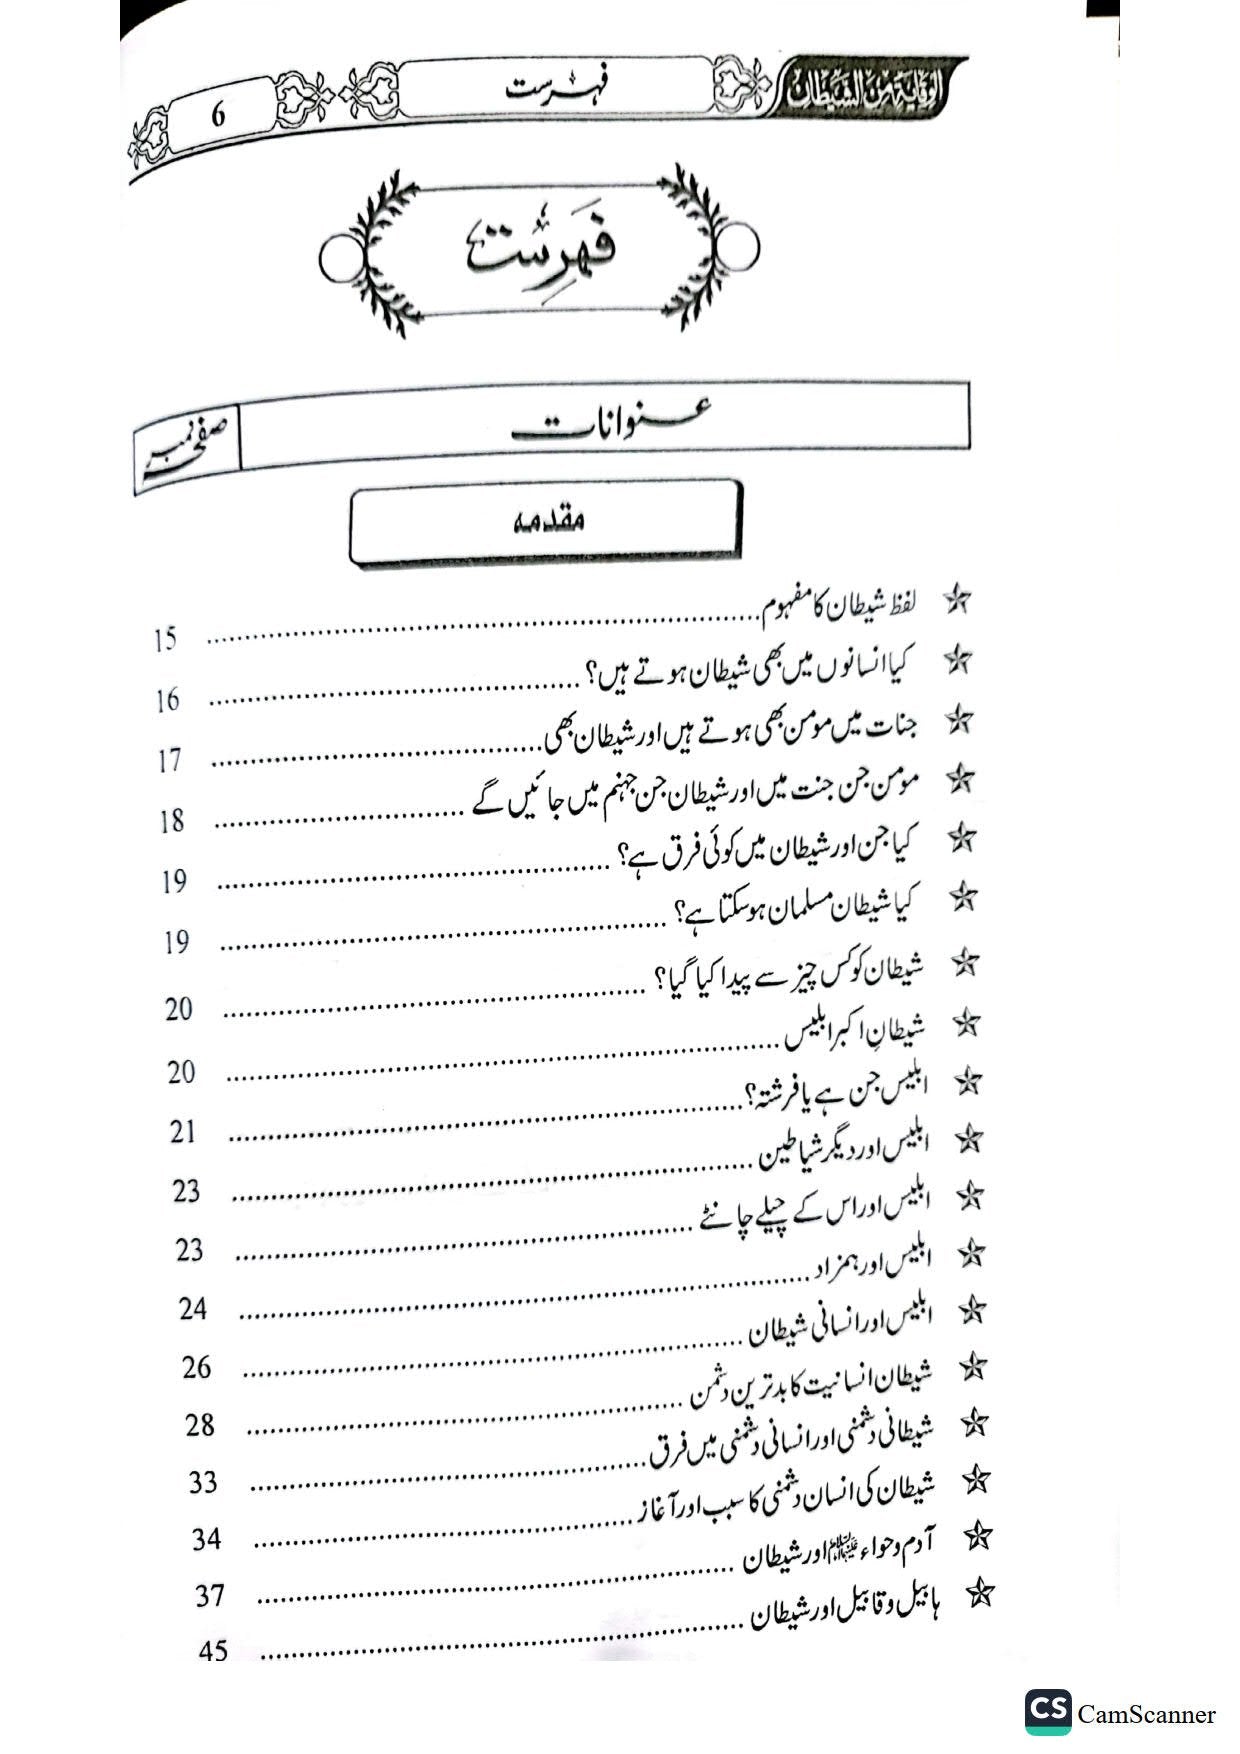 الوقاية من الشيطان فہرست 6
فہرست
عنوانات صفحہ نمبر
مقدمہ
لفظ شیطان کا مفہوم 15
کیا انسانوں میں بھی شیطان ہوتے ہیں؟ 16
جنات میں مومن بھی ہوتے ہیں اور شیطان بھی 17
مومن جن جنت میں اور شیطان جن جہنم میں جائیں گے 18
کیا جن اور شیطان میں کوئی فرق ہے؟ 19
کیا شیطان مسلمان ہوسکتا ہے؟ 19
شیطان کو کس چیز سے پیدا کیا گیا؟ 20
شیطانِ اکبر ابلیس 20
ابلیس جن ہے یا فرشتہ؟ 21
ابلیس اور دیگر شیاطین 23
ابلیس اور اس کے چیلے چانٹے 23
ابلیس اور ہمزاد 24
ابلیس اور انسانی شیطان 26
شیطان انسانیت کا بدترین دشمن 28
شیطانی دشمنی اور انسانی دشمنی میں فرق 33
شیطان کی انسان دشمنی کا سبب اور آغاز 34
آدم و حواء اور شیطان 37
ہابیل و قابیل اور شیطان 45
CS CamScanner